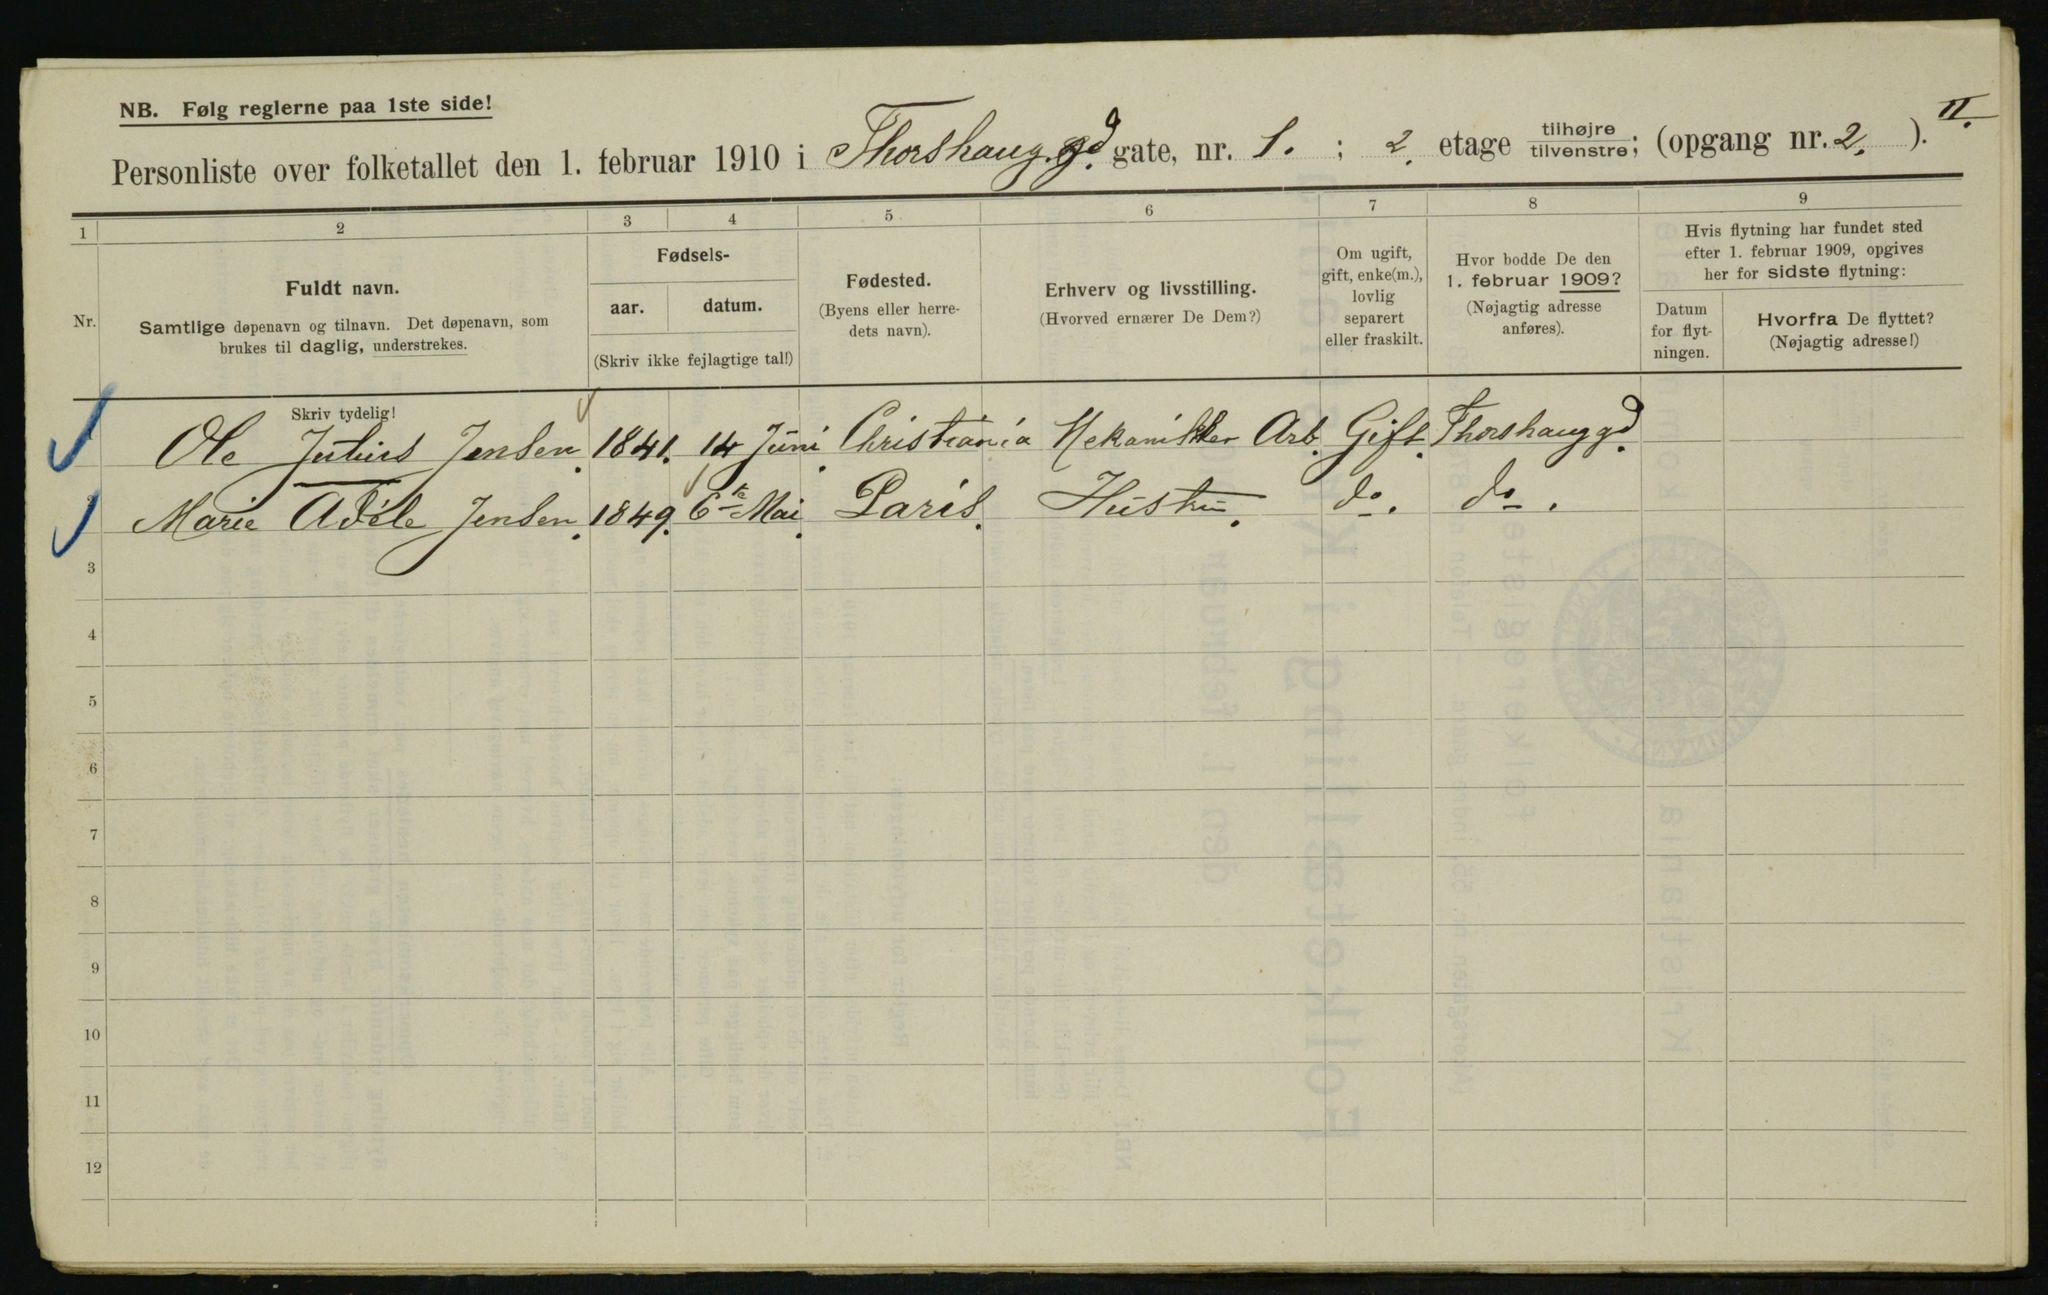 NB. Følg reglerne paa 1ste side!
II.
Personliste over folketallet den 1. februar 1910 i Thorshaug.gd. gate, nr. 1. ; 2. etage tilhøjre tilvenstre; (opgang nr. 2. ).
1 2 3 4 5 6 7 8 9
Nr.
Fuldt navn.
Samtlige døpenavn og tilnavn. Det døpenavn, som
brukes til daglig, understrekes.
Fødsels-
aar. datum.
(Skriv ikke fejlagtige tal!)
Fødested.
(Byens eller herre-
dets navn).
Erhverv og livsstilling.
(Hvorved ernærer De Dem?)
Om ugift,
gift, enke(m.),
lovlig
separert
eller fraskilt.
Hvor bodde De den
1. februar 1909?
(Nøjagtig adresse
anføres).
Hvis flytning har fundet sted
efter 1. februar 1909, opgives
her for sidste flytning:
Datum
for flyt-
ningen.
Hvorfra De flyttet?
(Nøjagtig adresse!)
Skriv tydelig!
Ole Julius Jensen. 1841. 14 Juni. Christiania Mekanikker Arb. Gift. Thorshauggd.
Marie Adéle Jensen. 1849. 6te Mai. Paris. Hustru. do. do.
3
4
5
6
7
8
9
10
11
12